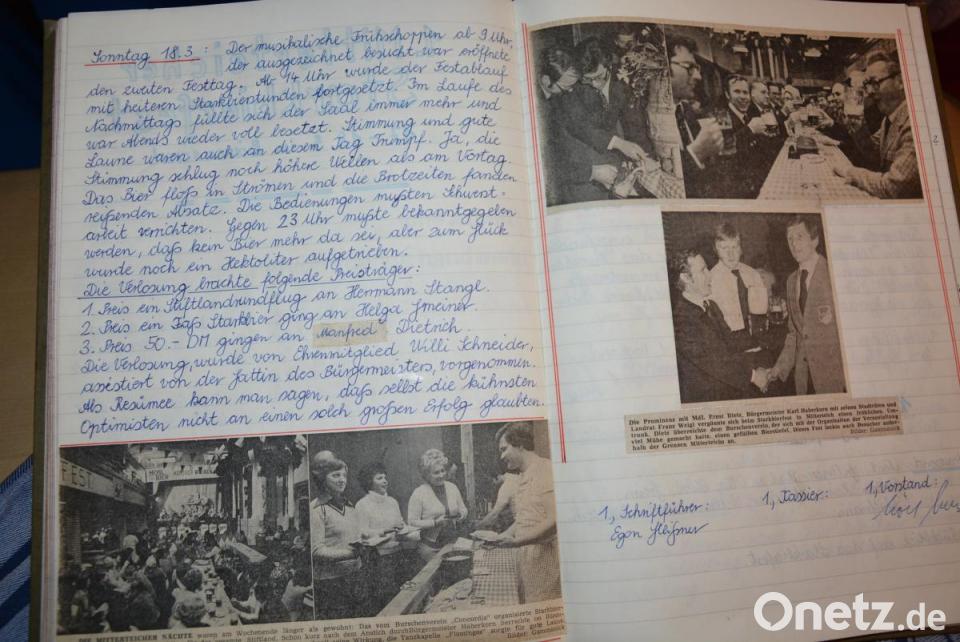 Sonntag 18.3.: Der musikalische Frühschoppen ab 9 Uhr,
der ausgezeichnet besucht war eröffnete
den zweiten Festtag. Ab 14 Uhr wurde der Festablauf
mit heiteren Starkbierstunden fortgesetzt. Im Laufe des
Nachmittags füllte sich der Saal immer mehr und
war Abends wieder voll besetzt. Stimmung und gute
Laune waren auch an diesem Tag Trumpf. Ja, die
Stimmung schlug noch höhere Wellen als am Vortag.
Das Bier floß in Strömen und die Brotzeiten fanden
reißenden Absatz. Die Bedienungen mußten Schwerst-
arbeit verrichten. Gegen 23 Uhr mußte bekanntgegeben
werden, daß kein Bier mehr da sei, aber zum Glück
wurde noch ein Hektoliter aufgetrieben.
Die Verlosung brachte folgende Preisträger:
1. Preis ein Stiftlandrundflug an Hermann Stangl.
2. Preis ein Faß Starkbier ging an Helga Gmeiner.
3. Preis 50.- DM gingen an Manfred Dietrich.
Die Verlosung, wurde von Ehrenmitglied Willi Schneider,
assestiert von der Gattin des Bürgermeisters, vorgenommen.
Als Resümee kann man sagen, daß selbst die kühnsten
Optimisten nicht an einen solch großen Erfolg glaubten.
FEST
DIE MITTERTEICHER NÄCHTE waren am Wochenende länger als gewohnt: Das vom Burschenverein „Concordia“ organisierte Starkbier-
Die Prominenz mit MdL Ernst Dietz, Bürgermeister Karl Haberkorn mit seinen Stadträten und
Landrat Franz Weigl vergnügte sich beim Starkbierfest in Mitterteich einen fröhlichen Um-
trunk. Dietz überreichte dem Burschenverein, der sich mit der Organisation der Veranstaltung
viel Mühe gemacht hatte, einen gefüllten Bierstiefel. Dieses Fest lockte auch Besucher außer-
halb der Grenzen Mitterteichs an.
2
1, Schriftführer:
Egon Heißner
1, Kassier:
1, Vorstand:
Onetz.de